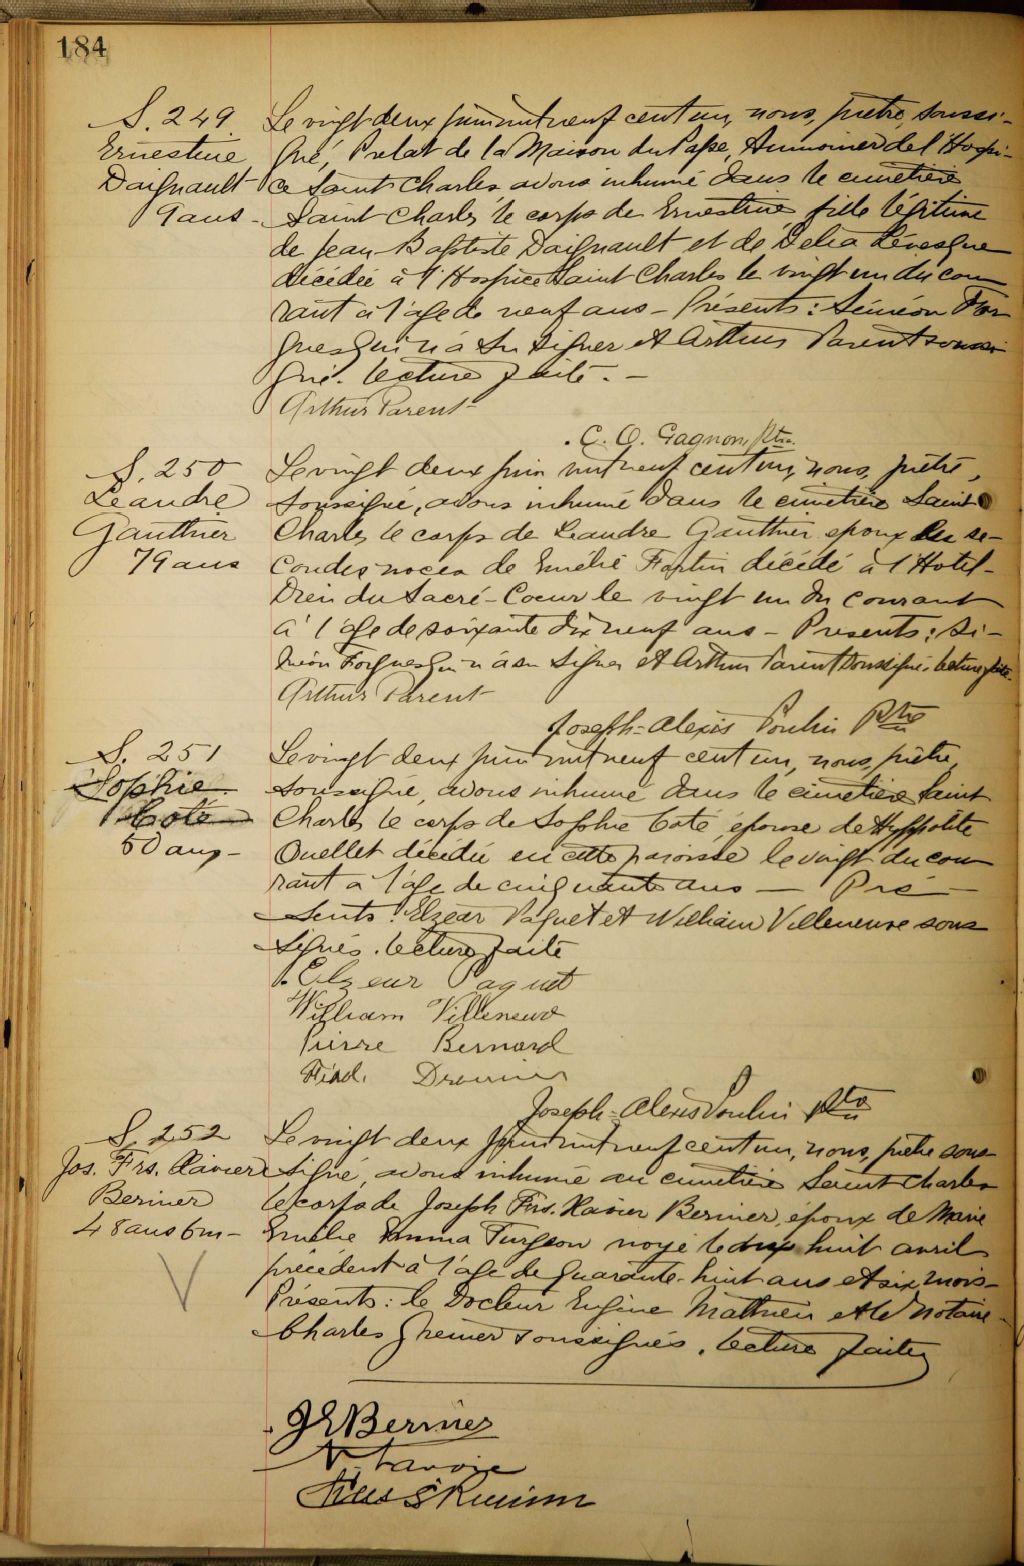 184
S. 249
Ernestine
Daignault
9 ans -
Le vingt deux juin mil neuf cent un, nous, prêtre, soussi-
gné, Prelat de la Maison du Pape, Aumonier de l'Hospi-
ce Saint Charles avons inhumé dans le cimetière
Saint Charles le corps de Ernestine, fille légitime
de Jean-Baptiste Daignault et de Delia Lévesque
décédée à l'Hospice Saint Charles le vingt un du cou
rant à l'âge de neuf ans - Présents: Siméon For
gues qui n'a su signer et Arthur Parent soussi
gné. lecture faite. -
Arthur Parent
C. O. Gagnon, Ptre.
S. 250
Leandre
Gauthier
79 ans
Le vingt deux juin mil neuf cent un, nous, prêtre,
soussigné, avons inhumé dans le cimetière Saint
Charles le corps de Leandre Gauthier epoux en se-
condes noces de Emélie Fortin décédé à l'Hotel-
Dieu du Sacré-Coeur le vingt un du courant
à l'âge de soixante dix neuf ans - Presents: Si-
méon Forgues qui n'a su signer et Arthur Parent soussigné. lecture faite.
Arthur Parent
Joseph-Alexis Poulin Ptre
S. 251
Sophie
Coté
50 ans -
Le vingt deux juin mil neuf cent un, nous, prêtre,
soussigné, avons inhumé dans le cimetière Saint
Charles le corps de Sophie Coté, épouse de Hyppolite
Ouellet décédée en cette paroisse le vingt du cou
rant a l'âge de cinquante ans - Pré-
sents: Elzear Paquet et William Villeneuve sous
signés. lecture faite
Elzear Paquet
William Villeneuve
Pierre Bernard
Ferd.
Joseph-Alexis Poulin Ptre
S. 252
Jos. Frs. Xavier
Bernier
48 ans 6 m -
Le vingt deux juin mil neuf cent un, nous, prêtre sous
signé, avons inhumé au cimetière Saint Charles
le corps de Joseph Frs. Xavier Bernier, époux de Marie
Emélie Emma Turgeon noyé le huit avril
précédent à l'âge de quarante-huit ans et six mois-
Présents: le Docteur Eugène Mathieu et le notaire
Charles Grenier soussignés. lecture faite
J E Bernier